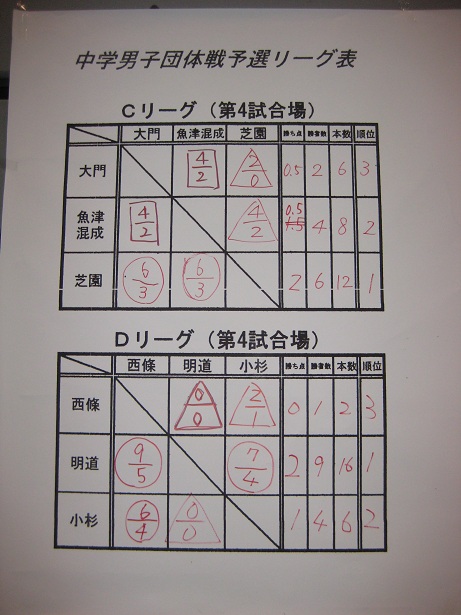 中学男子団体戦予選リーグ表
Cリーグ（第4試合場）
大門 魚津混成 芝園 勝ち点 勝者数 本数 順位
大門 4/2 2/0 0.5 2 6 3
魚津混成 4/2 4/2 0.5 1.5 4 8 2
芝園 6/3 6/3 2 6 12 1
Dリーグ（第4試合場）
西條 明道 小杉 勝ち点 勝者数 本数 順位
西條 0/0 2/1 0 1 2 3
明道 9/5 7/4 2 9 16 1
小杉 6/4 0/0 1 4 6 2